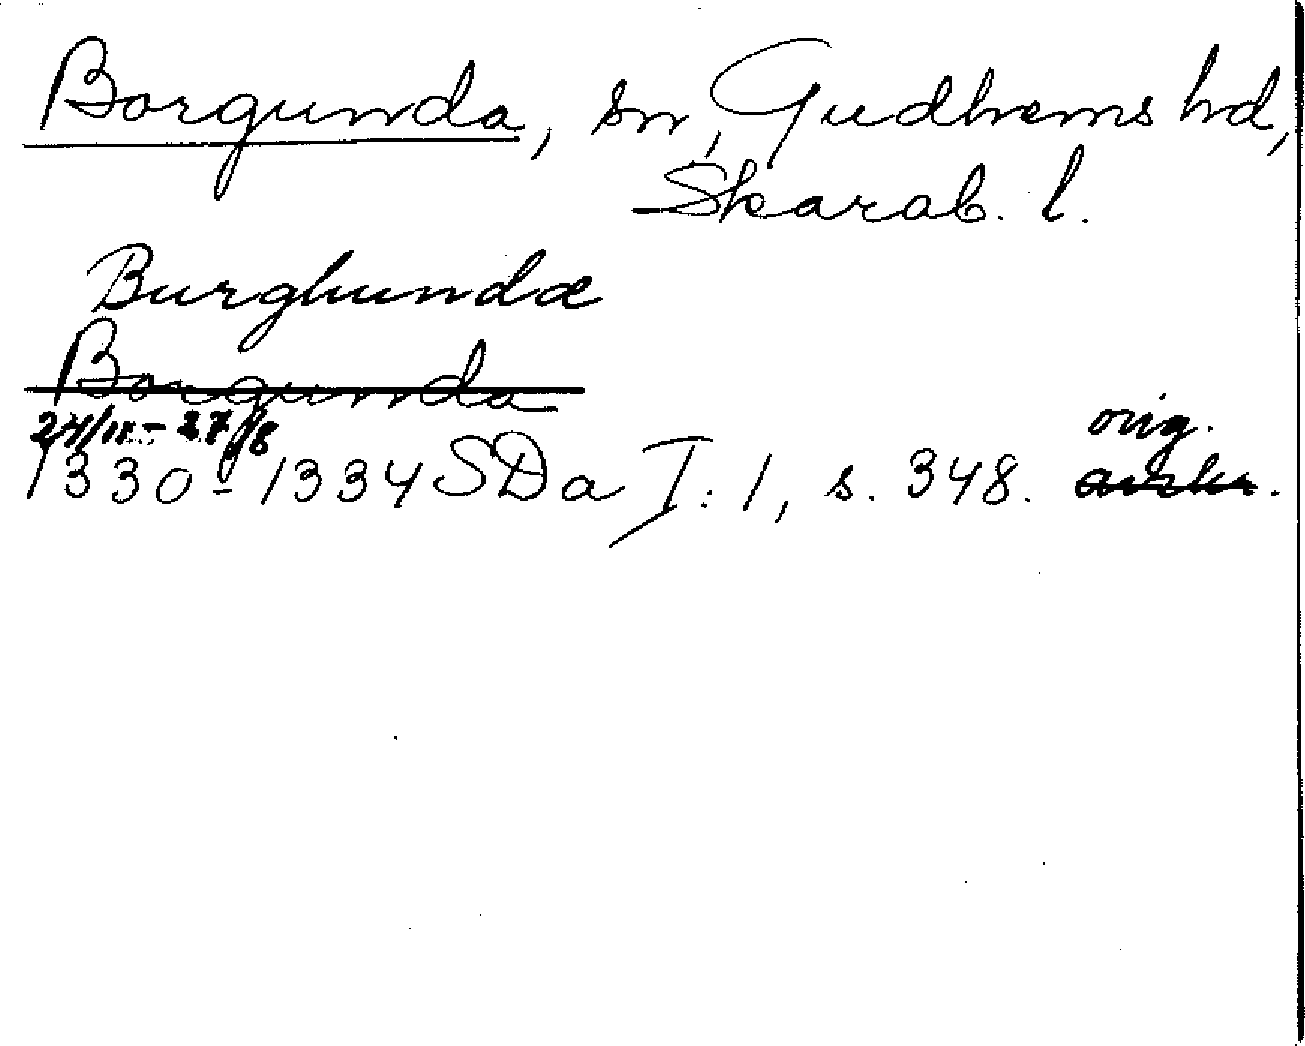 Borgunda, sn, Gudhems hd,
Skarab. l.
Burghundæ
Borgunda
24/11 - 27/8
orig.
1330 - 1334 SDa I: 1, s. 348.